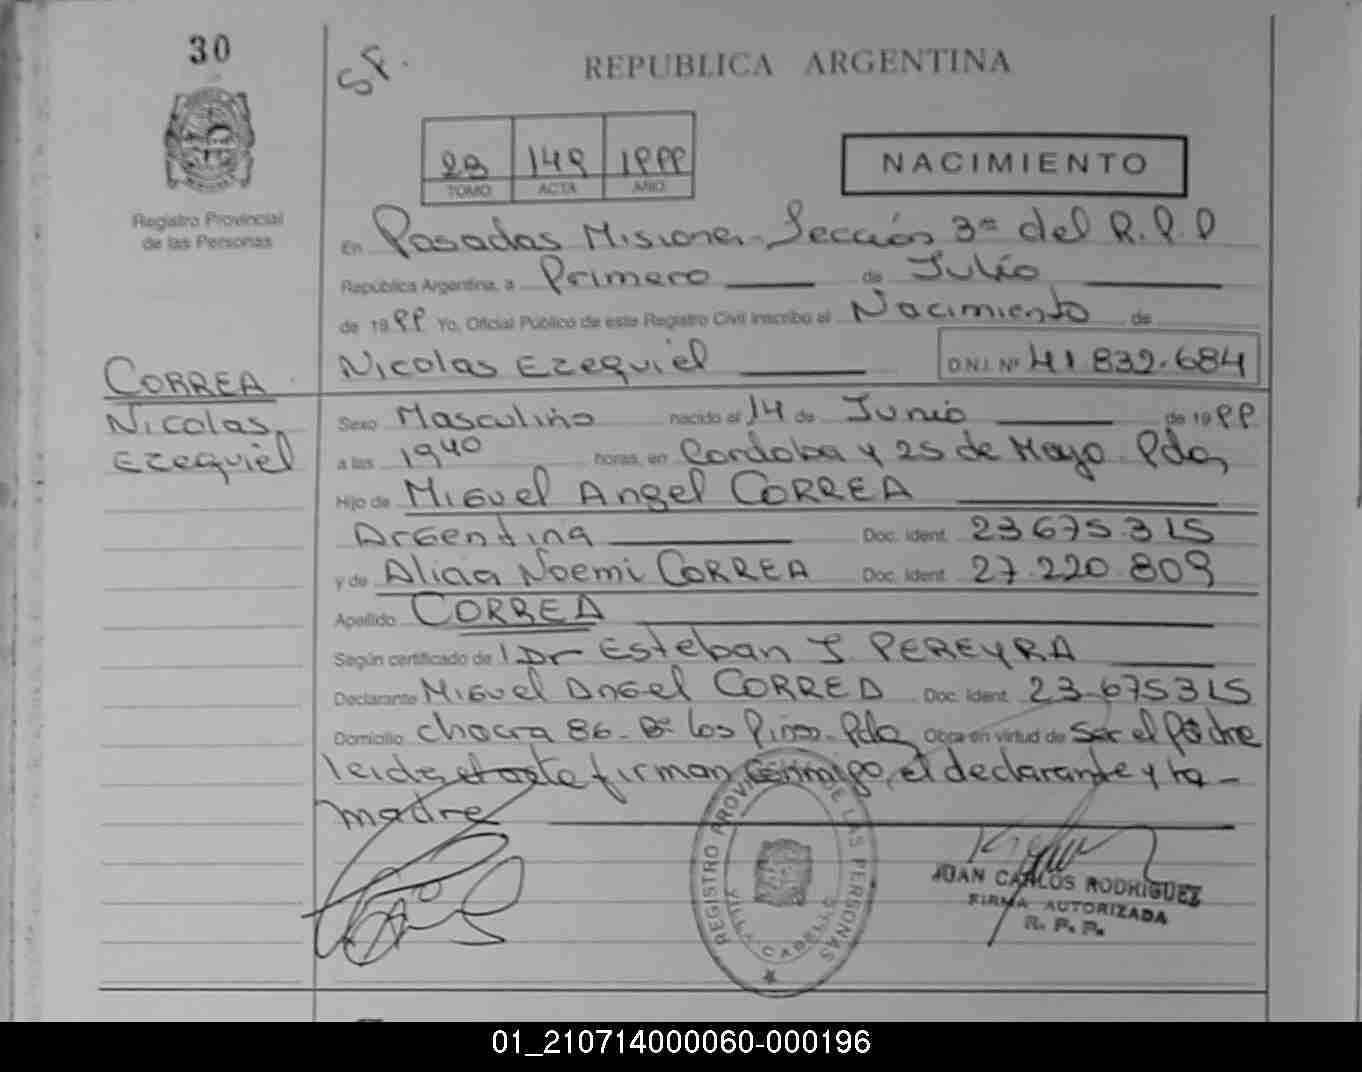 30
SF.
REPUBLICA ARGENTINA
Registro Provincial
de las Personas
149 1999
TOMO ACTA AÑO
NACIMIENTO
En Posadas Misiones - Sección 3ª del R.P.P
República Argentina, a Primero de Julio
de 1999 Yo, Oficial Público de este Registro Civil inscribo el Nacimiento de
Nicolas Ezequiel D.N.I. Nº 41.832.684
CORREA
Nicolas
Ezequiel
Sexo Masculino nacido el 14 de Junio de 1999
a las 1940 horas, en Cordoba y 25 de Mayo. Pdas
Hijo de Miguel Angel CORREA
Argentina Doc. Ident. 23 675.315
y de Alicia Noemi CORREA Doc. Ident. 27.220.809
Apellido CORREA
Según certificado de Dr Esteban J PEREYRA
Declarante Miguel Angel CORREA Doc. Ident. 23.675315
Domicilio chacra 86 - Bº los Pinos - Pdas Obra en virtud de ser el padre
leida el acta firman conmigo, el declarante y la -
madre
REGISTRO PROVINCIAL DE LAS PERSONAS
VILLA CABELLO
JUAN CARLOS RODRIGUEZ
FIRMA AUTORIZADA
R. P. P.
01_210714000060-000196